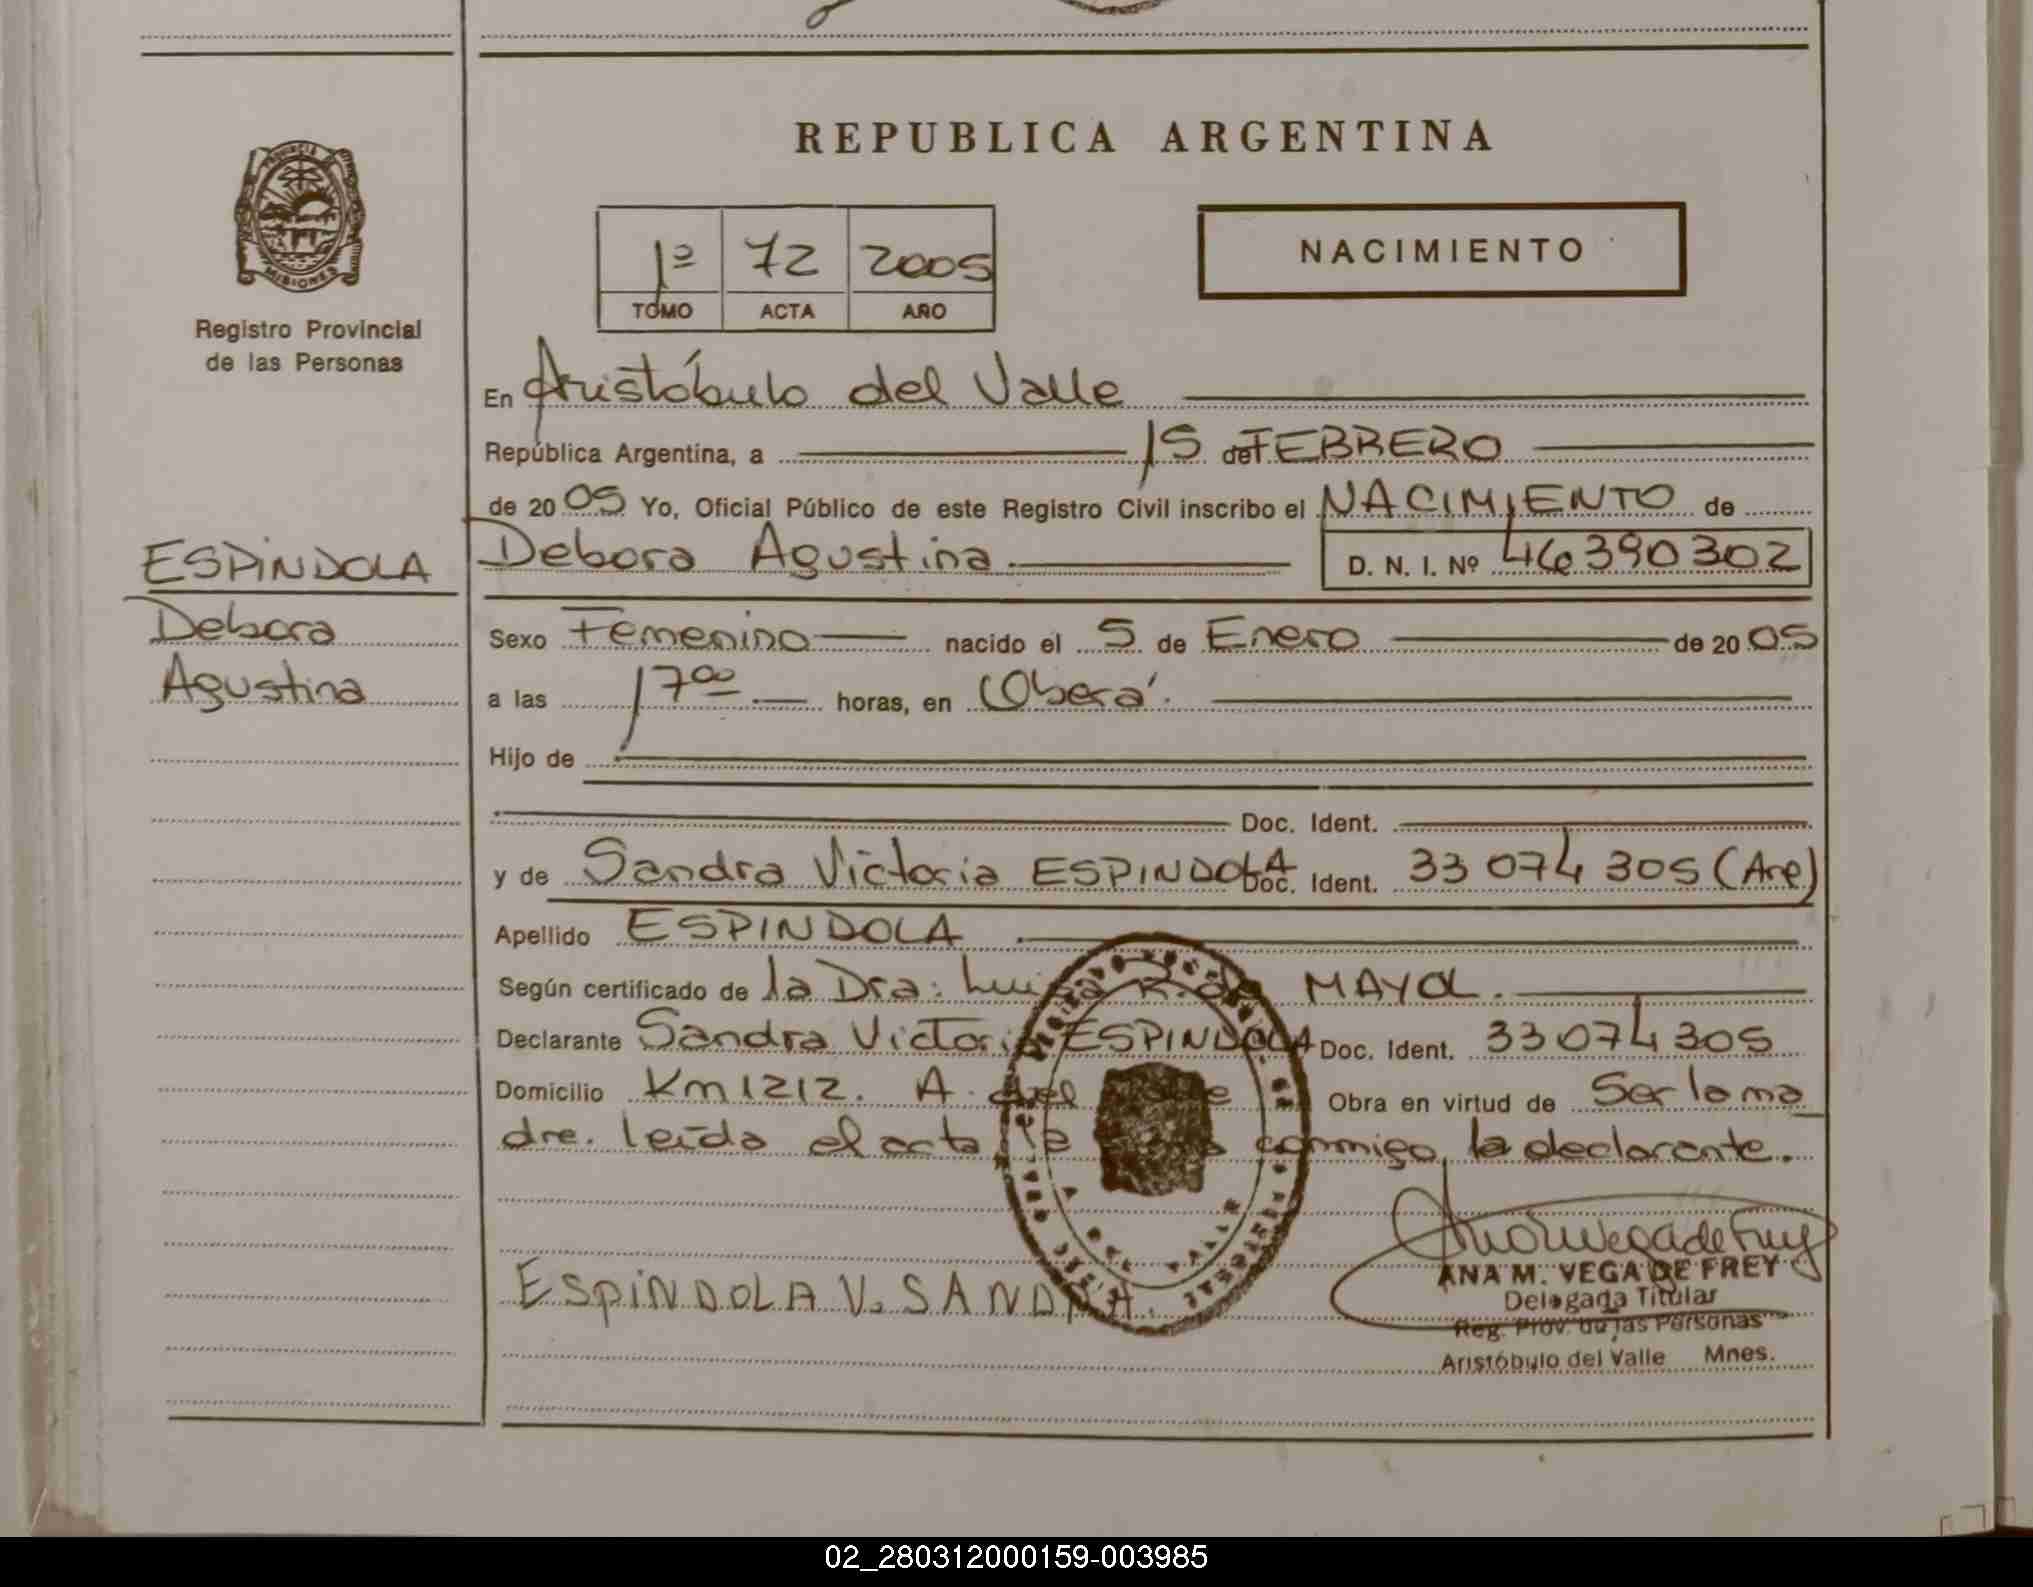 REPUBLICA ARGENTINA
PROVINCIA DE
MISIONES
Registro Provincial
de las Personas
1º 72 2005
TOMO ACTA AÑO
NACIMIENTO
En Aristóbulo del Valle
República Argentina, a 15 de FEBRERO
de 2005 Yo, Oficial Público de este Registro Civil inscribo el NACIMIENTO de
ESPINDOLA
Debora
Agustina
Debora Agustina D. N. I. Nº 46390302
Sexo Femenino nacido el 5 de Enero de 2005
a las 17 00 horas, en Oberá.
Hijo de
Doc. Ident.
y de Sandra Victoria ESPINDOLA Doc. Ident. 33 074 305 (Arg)
Apellido ESPINDOLA
Según certificado de la Dra: Luisa R. de MAYOL.
Declarante Sandra Victoria ESPINDOLA Doc. Ident. 33074305
Domicilio Km 1212. A. del Valle Obra en virtud de Ser la ma
dre. leída el acta la conmigo la declarante.
ESPINDOLA V. SANDRA.
Ana M Vega de Frey
ANA M. VEGA DE FREY
Delegada Titular
Reg. Prov. de las Personas
Aristóbulo del Valle Mnes.
02_280312000159-003985